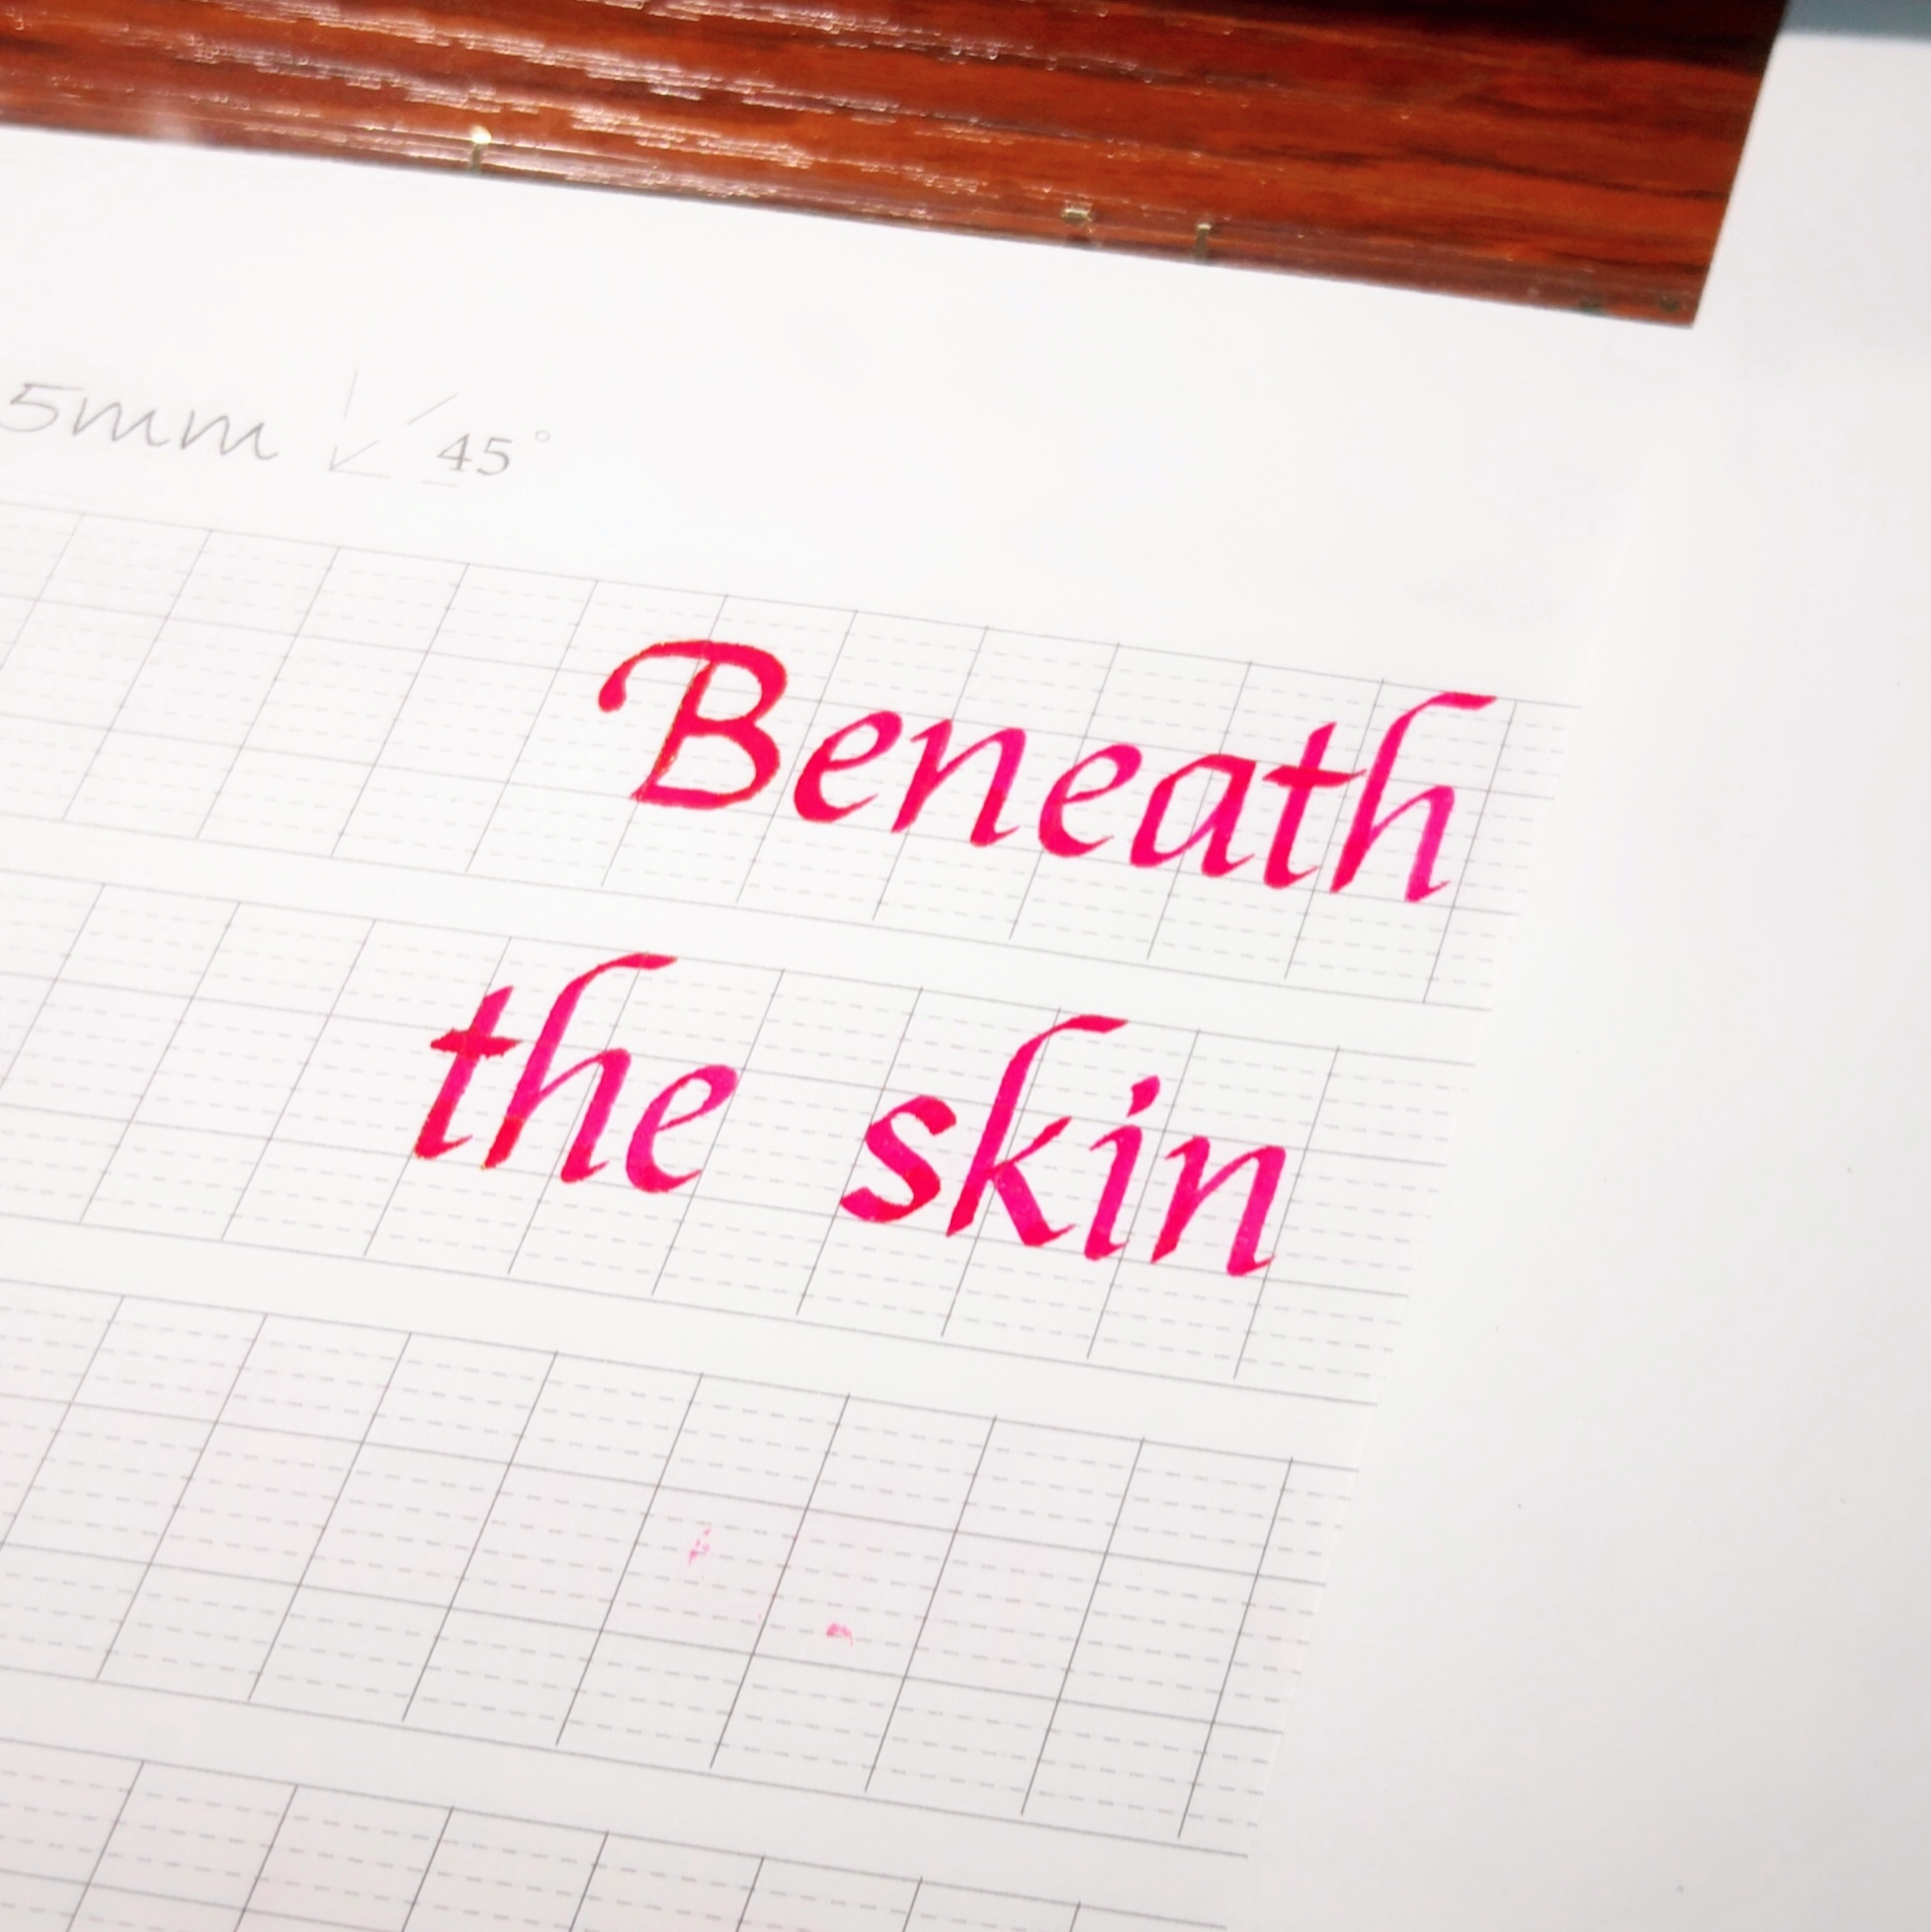 5mm 45°
Beneath
the skin